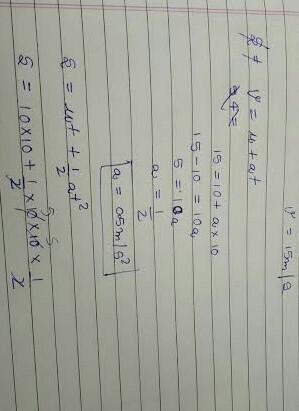 v = 15m/s
v = u + at
15 = 10 + a × 10
15 - 10 = 10a
5 = 10a
a = 1/2
a = 05m/s²
S = ut + 1/2 at²
S = 10×10 + 1/2 × 10 × 10 × 1/2